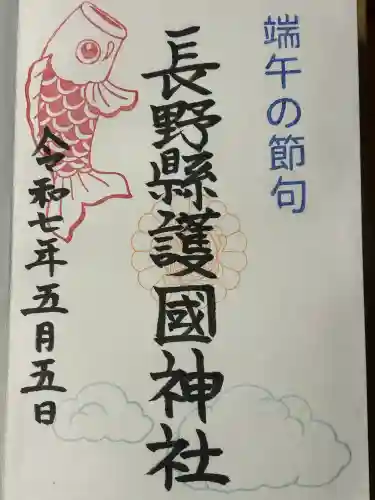 端午の節句
長野縣護國神社
令和七年五月五日